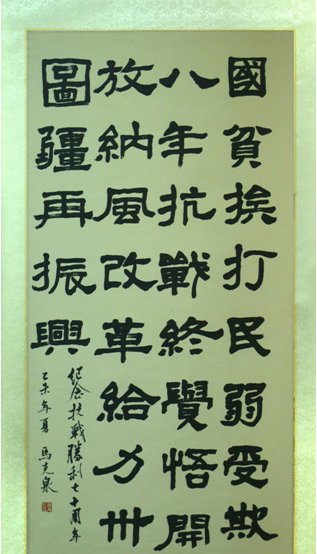 國貧挨打民弱受欺
八年抗戰終覺悟開
放納風改革給力卅
圖疆再振興
紀念抗戰勝利七十周年
乙未年夏 馬克泉